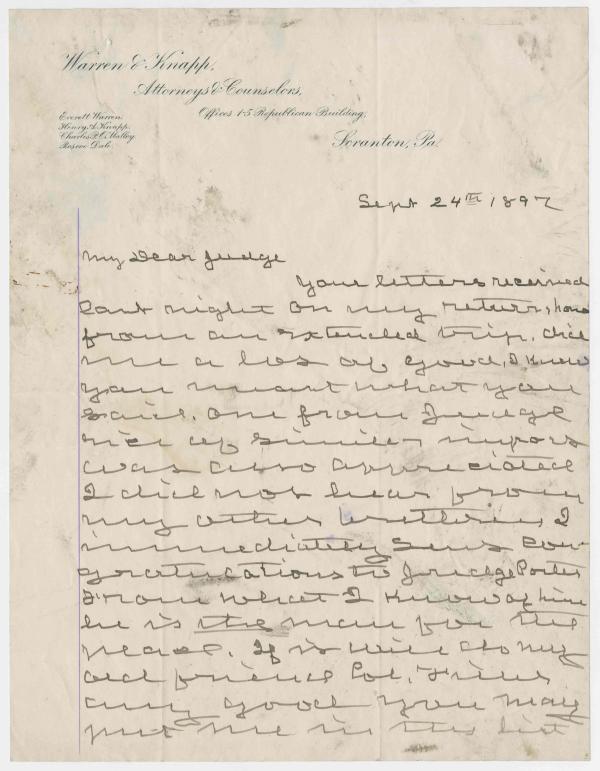 Warren & Knapp,
Attorneys & Counselors,
Offices 1-5 Republican Building,
Everett Warren.
Henry A. Knapp.
Charles P. O'Malley.
Roscoe Dale.
Scranton, Pa.
Sept 24th 1897
My Dear Judge
Your letters received
last night on my return home
from an extended trip. did
me a lot of good, I know
you meant what you
said. One from Judge
Rice of similar import
was also appreciated
I did not hear from
my other brethren, I
immediately sent con-
gratulations to Judge Porter
From what I know of him
he is the man for the
place. If it will do my
old friend Col.
any good you may
put me in the list